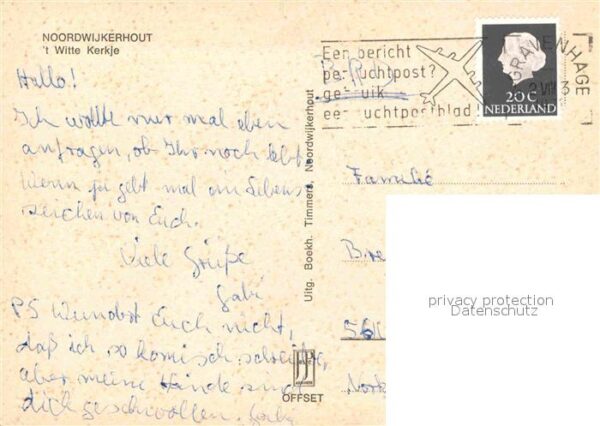 NOORDWIJKERHOUT
't Witte Kerkje
Hallo!
Ich wollte nur mal eben
anfragen, ob Ihr noch lebt.
Wenn ja gebt mal ein Lebens
zeichen von Euch.
Viele Grüße
Gabi
PS Wundert Euch nicht,
daß ich so komisch schreibe,
aber meine Hände sind
dick geschwollen. Gaby
Uitg. Boekh. Timmers, Noordwijkerhout
OFFSET
Een bericht
per luchtpost?
gebruik
een luchtpostblad!
'S GRAVENHAGE
20c
NEDERLAND
Familie
Bre
561
privacy protection
Datenschutz